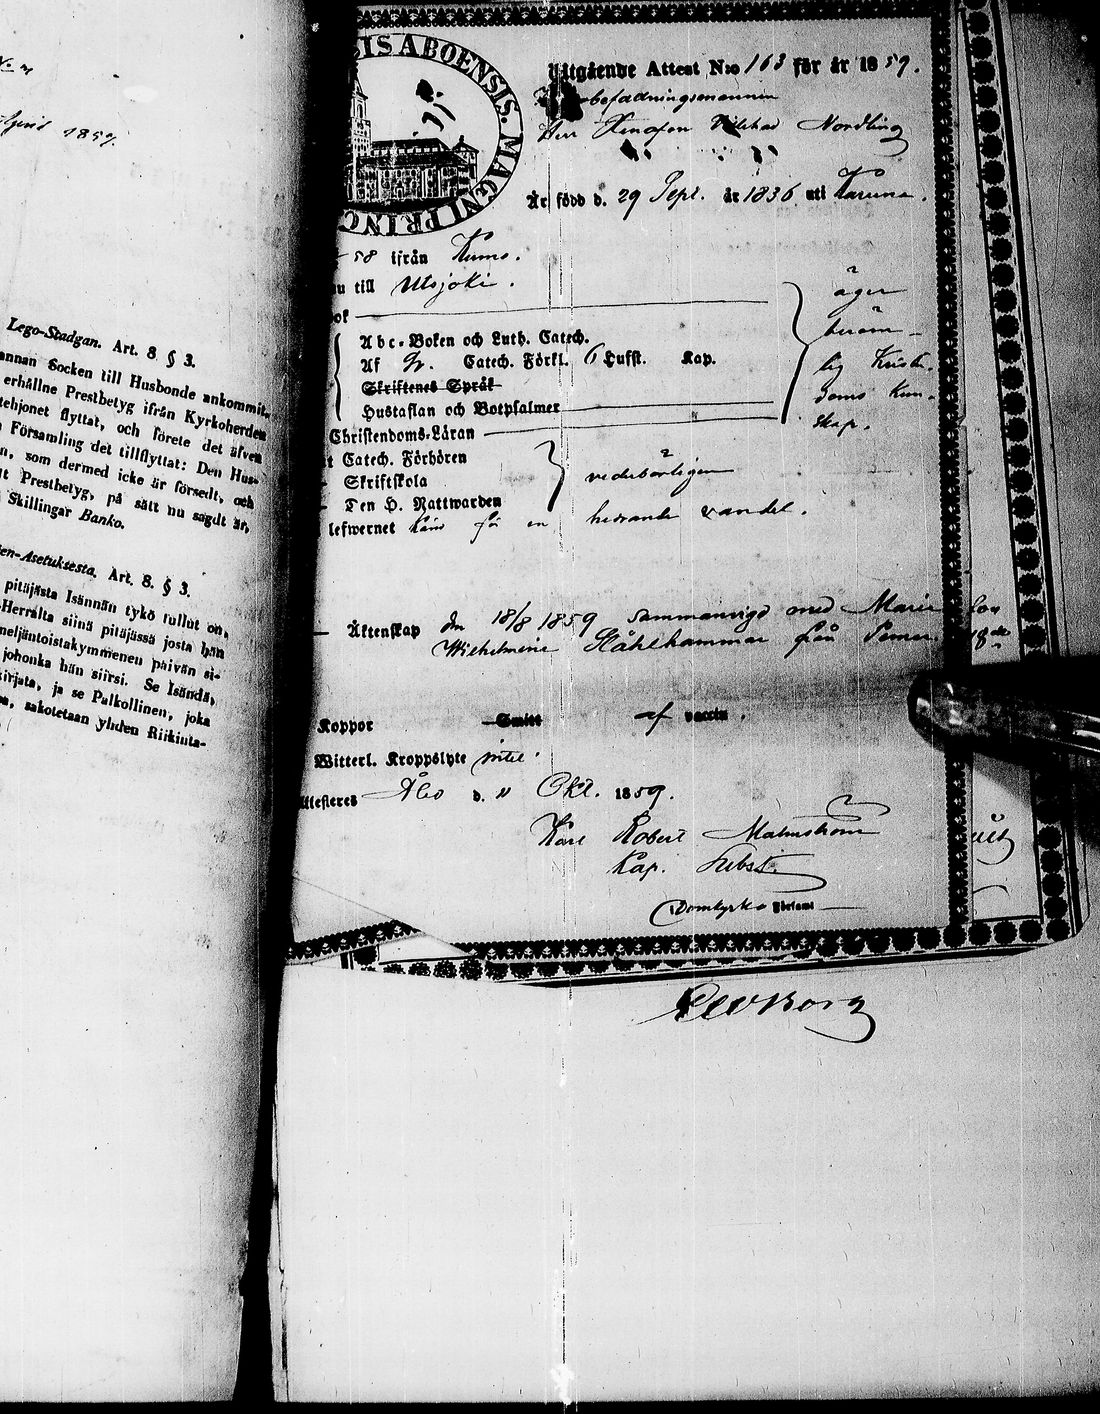 1859.
Lego-Stadgan. Art. 8 § 3.
annan Socken till Husbonde ankommit,
erhållne Prestbetyg ifrån Kyrkoherden
tehjonet flyttat, och förete det äfven
Församling det tillflyttat: Den Hus-
n, som dermed icke är försedt, och
tt Prestbetyg, på sätt nu sagdt är,
Skillingar Banko.
en-Asetuksesta. Art. 8. § 3.
pitäjästa Isännän tykö tullut on,
-Herralta siinä pitäjässä josta hän
neljäntoistakymmenen päivän si-
johonka hän siirsi. Se Isändä,
kirjata, ja se Palkollinen, joka
sakotetaan yhden Riikinta-
SIS ABOENSIS. MAGNI PRINC
Utgående Attest N:o 163 för år 1859.
befallningsmannen
Herr Xenofon Nordling
Är född d. 29 Sept. år 1836 uti Karuna.
58 ifrån Kumo.
nu till Utsjoki.
ok
Abc-Boken och Luth. Catech.
Af Catech. Förkl. 6 Hufst. Kap.
Skriftenes Språk
Hustaflan och Botpsalmer
äger
beröm-
lig Kristen-
doms Kun-
skap.
Christendoms-Läran
t Catech. Förhören
Skriftskola
Den H. Nattwarden
vederbörligen
lefwernet känd för en hedrande vandel.
Äktenskap den 18/8 1859 sammanvigd med Maria Lov
Wilhelmina Ståhlhammar från Pemar
Koppor Smitt af vaccin.
Witterl. Kroppslyte intet.
Attesteras Åbo d. 11 Okt. 1859.
Karl Robert Malmström
Kap. Subst.
Domkyrko Förlaml